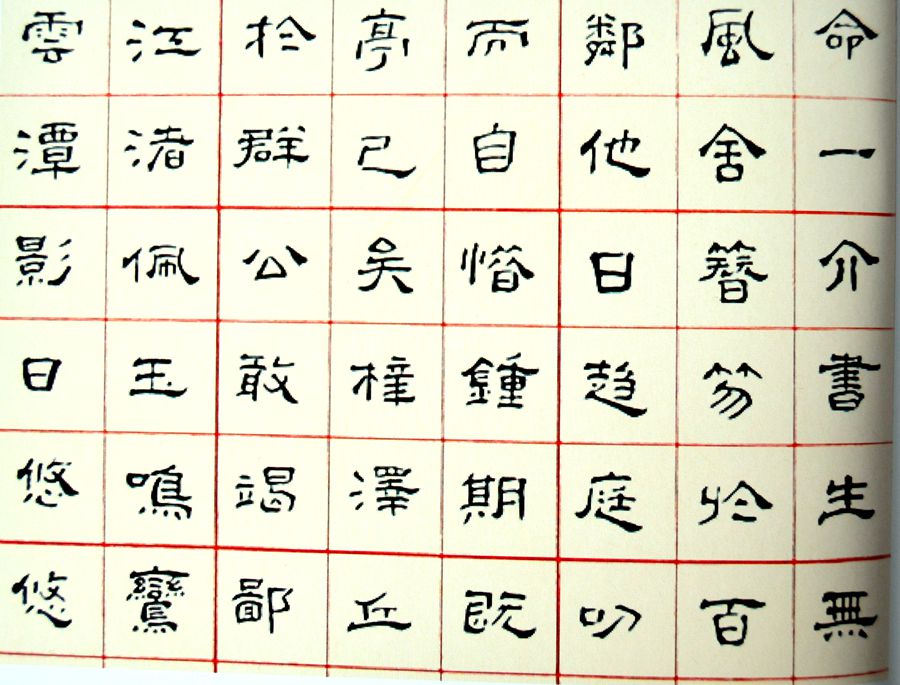 命一介書生無
風舍簪笏於百
鄰他日趍庭叨
而自惜鍾期既
亭已矣梓澤丘
於群公敢竭鄙
江渚佩玉鳴鸞
雲潭影日悠悠